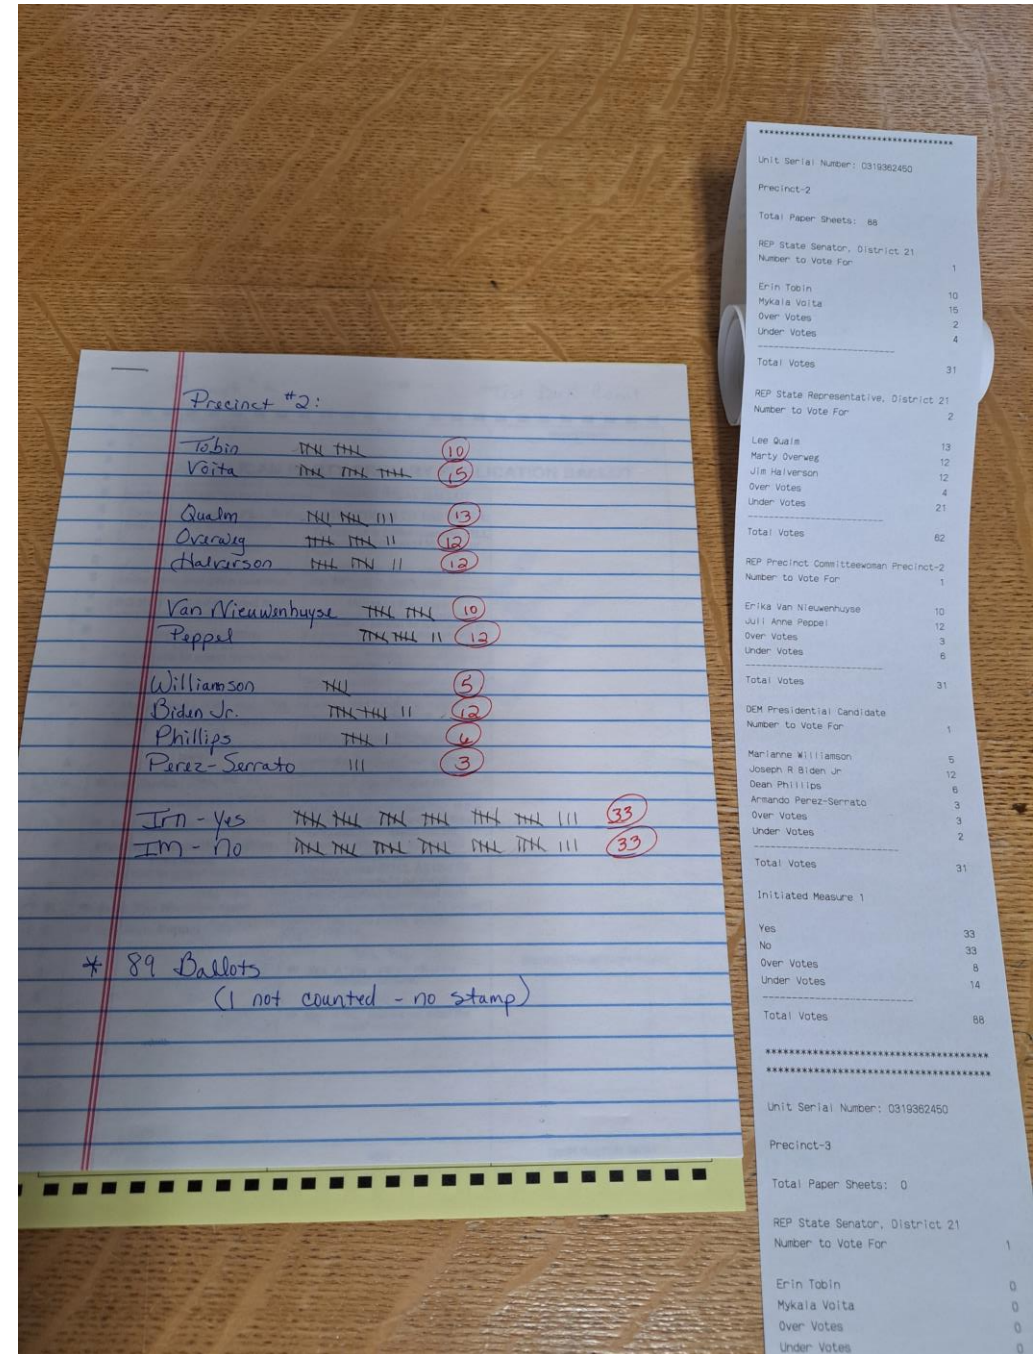 Precinct #2:
Tobin 10
Voita 15
Qualm 13
Overweg 12
Halverson 12
Van Nieuwenhuyse 10
Peppel 12
Williamson 5
Biden Jr. 12
Phillips 6
Perez-Serrato 3
Im - Yes 33
Im - no 33
* 89 Ballots
(1 not counted - no stamp)
***************************************
Unit Serial Number: 0319362450
Precinct-2
Total Paper Sheets: 88
REP State Senator, District 21
Number to Vote For 1
Erin Tobin 10
Mykala Voita 15
Over Votes 2
Under Votes 4
Total Votes 31
REP State Representative, District 21
Number to Vote For 2
Lee Qualm 13
Marty Overweg 12
Jim Halverson 12
Over Votes 4
Under Votes 21
Total Votes 62
REP Precinct Committeewoman Precinct-2
Number to Vote For 1
Erika Van Nieuwenhuyse 10
Juli Anne Peppel 12
Over Votes 3
Under Votes 6
Total Votes 31
DEM Presidential Candidate
Number to Vote For 1
Marianne Williamson 5
Joseph R Biden Jr 12
Dean Phillips 6
Armando Perez-Serrato 3
Over Votes 3
Under Votes 2
Total Votes 31
Initiated Measure 1
Yes 33
No 33
Over Votes 8
Under Votes 14
Total Votes 88
***************************************
***************************************
Unit Serial Number: 0319362450
Precinct-3
Total Paper Sheets: 0
REP State Senator, District 21
Number to Vote For 1
Erin Tobin 0
Mykala Voita 0
Over Votes 0
Under Votes 0